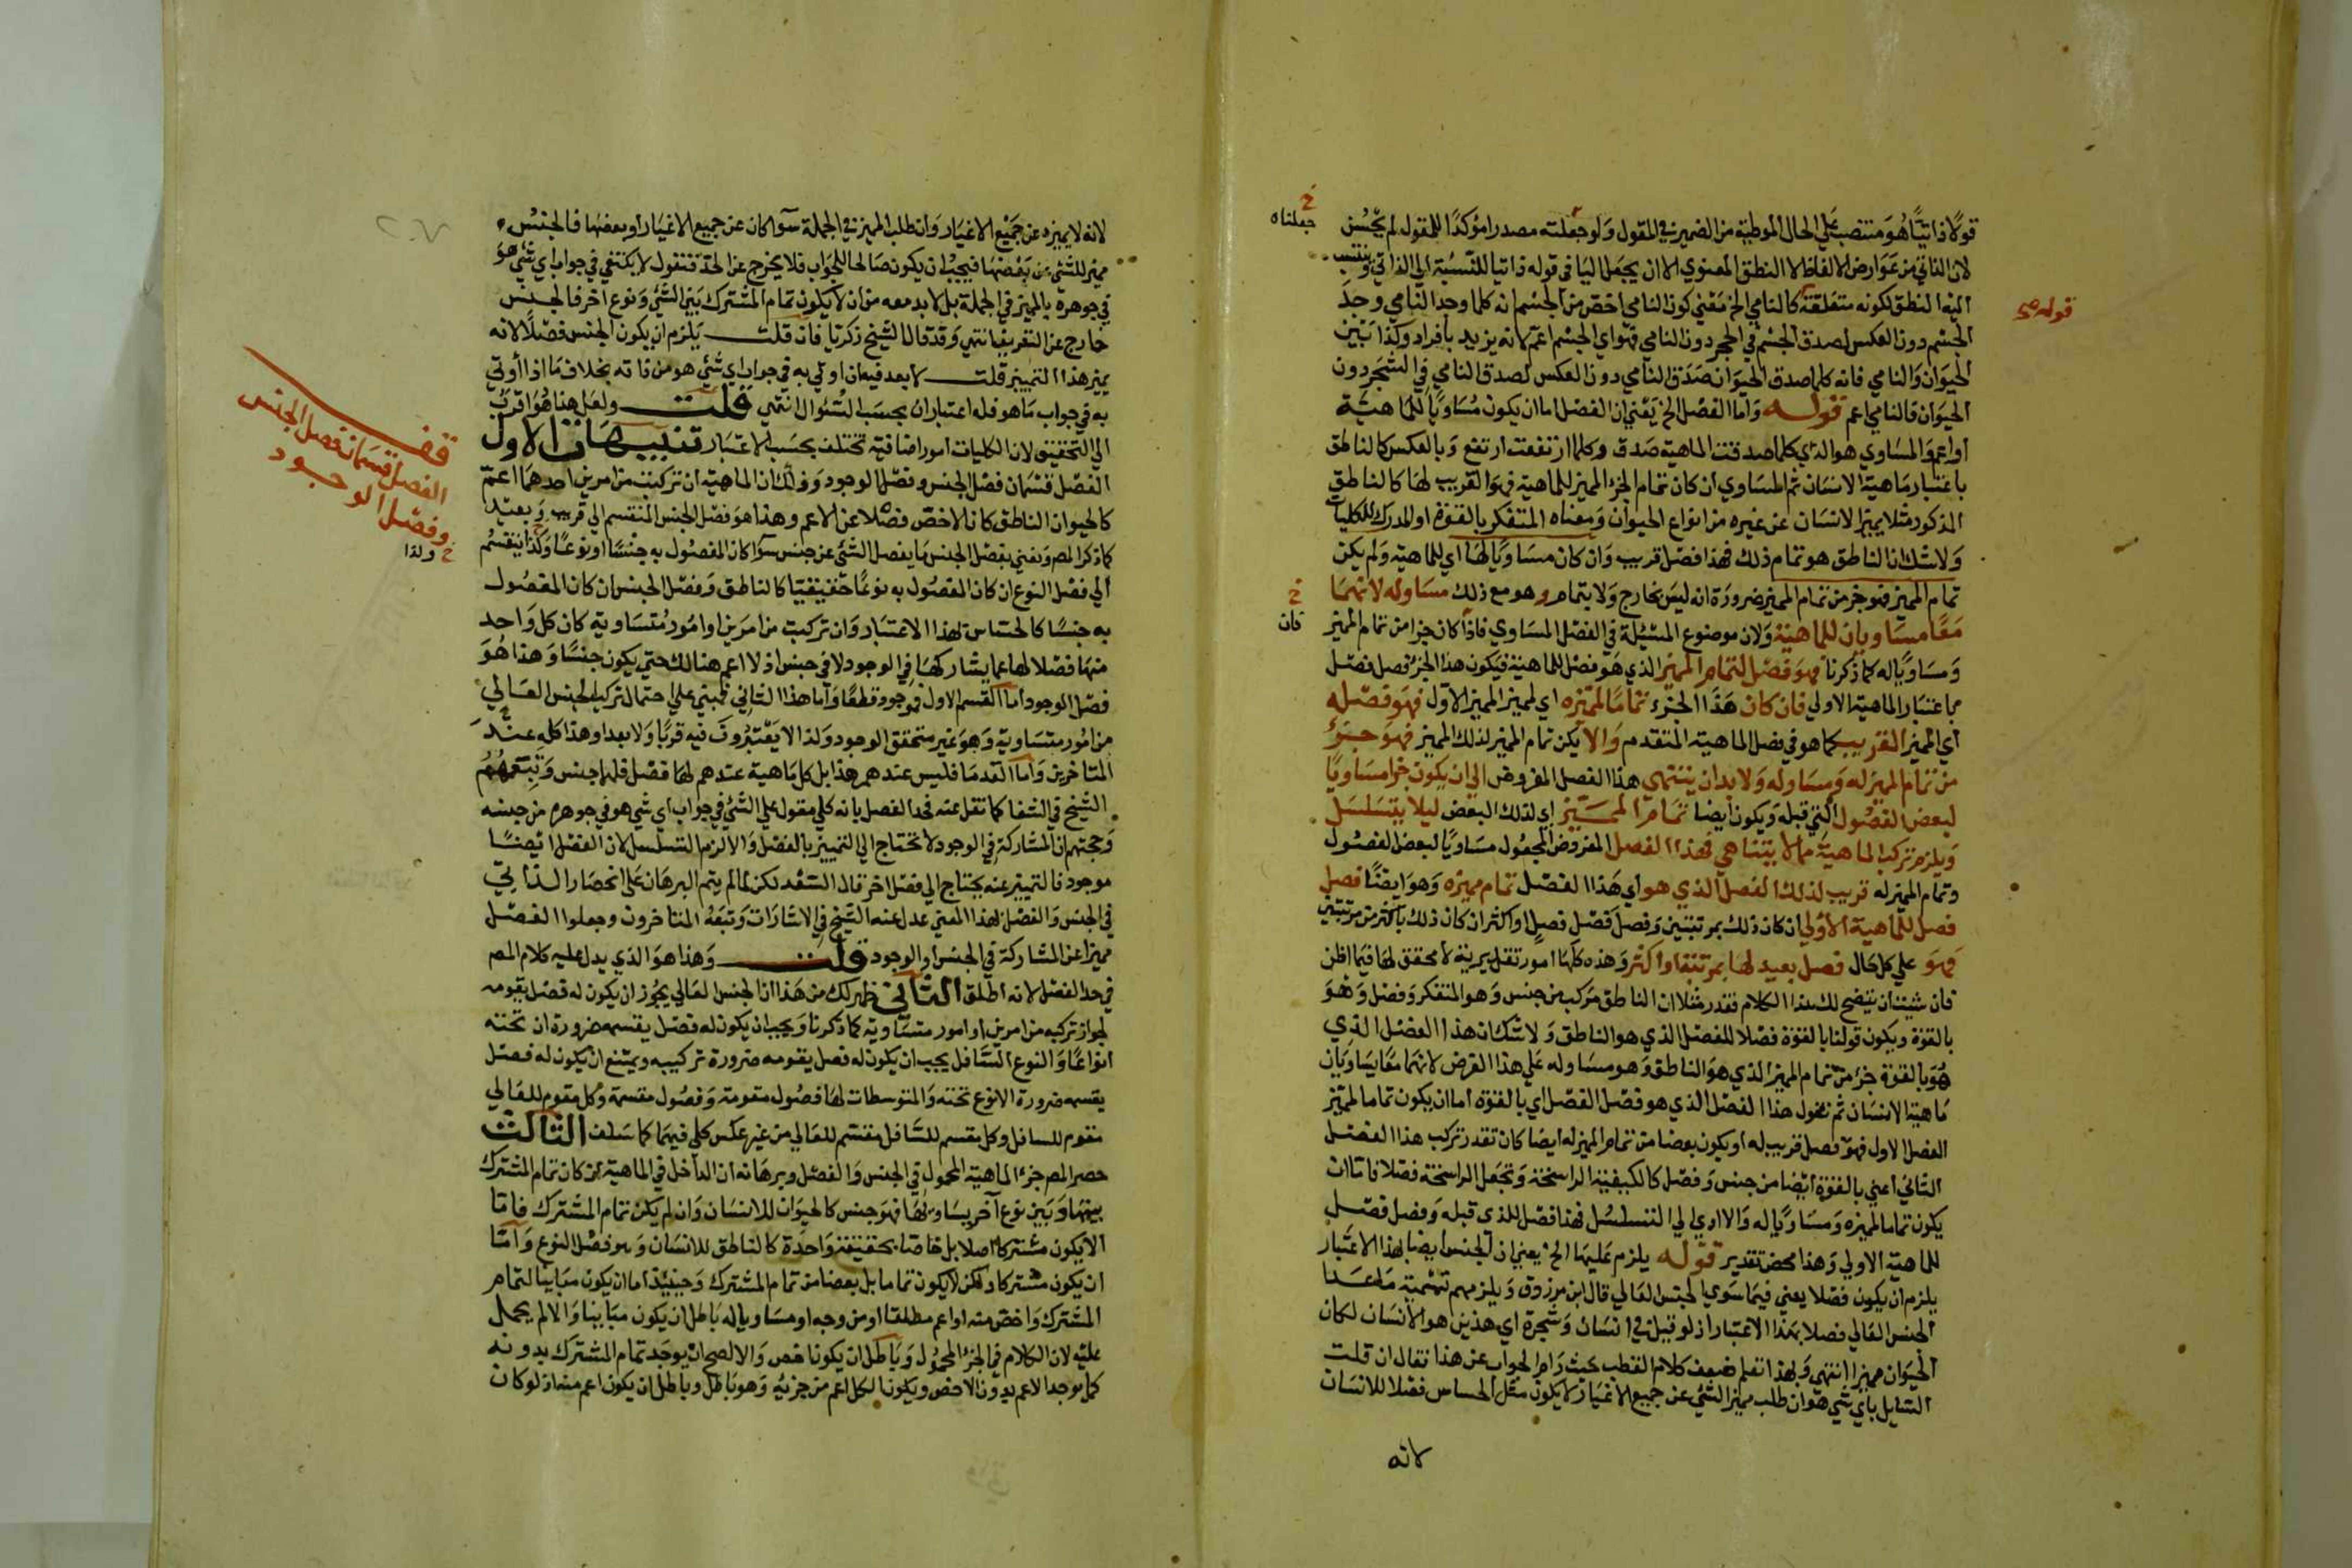 قولا ذاتيا هو منتصب على الحال الموطية من الضمير في المقول ولو جعلته مصدرا مؤكدا للمقول لم يحسن
خ جعلناه
لان الذاتي من عوارض الالفاظ لا النطق المعنوي الا ان يجعل اليا في قوله ذاتيا للنسبة الي الذاتي وينتسب
اليه النطق لكونه متعلقه كالنامي الخ معني كون النامي اخص من الجسم انه كلما وجد النامي وجد
قوله
الجسم دون العكس لصدق الجسم في الحجر دون النامي فهو اي الجسم اعم لانه يزيد بافراد وكذا بين
الحيوان والنامي فانه كلما صدق الحيوان صدق النامي دون العكس لصدق النامي في الشجر دون
الحيوان فالنامي اعم قوله واما الفصل الخ يعني ان الفصل اما ان يكون مساويا للماهية
او اعم والمساوي هو الذي كلما صدقت الماهية صدق وكلما ارتفعت ارتفع وبالعكس كالناطق
باعتبار ماهية الانسان ثم المساوي ان كان تمام الجزء المميز للماهية فهو القريب لها كالناطق
المذكور مثلا يميز الانسان عن غيره من انواع الحيوان ومعناه المتفكر بالقوة او المدرك للكليات
ولا شك ان الناطق هو تمام ذلك فهذا فصل قريب وان كان مساويا لها اي للماهية ولم يكن
تمام المميز فهو جزء من تمام المميز ضرورة انه ليس بخارج ولا بتمام وهو مع ذلك مساو له لانهما
خ فان
معا مساويان للماهية ولان موضوع المسئلة في الفصل المساوي فاذا كان جزا من تمام المميز
ومساويا له كما ذكرنا فهو فصل لتمام المميز الذي هو فصل للماهية فيكون هذا الجزء فصل فصل
باعتبار الماهية الاولي فان كان هذا الجزء تماما لمميزه اي لمميز المميز الاول فهو فصله
اي المميز القريب كما هو في فصل الماهية المتقدم والا يكن تمام المميز لذلك المميز فهو جزؤ
من تمام المميز له ومساو له ولا بد ان ينتهي هذا الفصل المفروض الي ان يكون جزا مساويا
لبعض الفصول التي قبله ويكون ايضا تمام المميز اي لذلك البعض ليلا يتسلسل
ويلزم تركب الماهية مما لا يتناهي فهذا الفصل المفروض المجعول مساويا لبعض الفصول
وتمام المميز له قريب لذلك الفصل الذي هو اي هذا الفصل تمام مميزه وهو ايضا فصل
فصل للماهية الاولي ان كان ذلك بمرتبتين وفصل فصل فصل او اكثر ان كان ذلك باكثر من مرتبتين
فهو علي كل حال فصل بعيد لها بمرتبة او اكثر وهذه كلها امور تقديرية لا محقق لها فيما اظن
فان شئت ان يتضح لك هذا الكلام فقدر مثلا ان الناطق مركب من جنس وهو المتفكر وفصل وهو
بالقوة ويكون قولنا بالقوة فصلا للفصل الذي هو الناطق ولا شك ان هذا الفصل الذي
هو بالقوة جزء من تمام المميز الذي هو الناطق وهو مساو له علي هذا الفرض لانهما معا يساويان
ماهية الانسان ثم نقول هذا الفصل الذي هو فصل الفصل اي بالقوة اما ان يكون تماما لمميز
الفصل الاول فهو فصل قريب له او يكون بعضا من تمام المميز له ايضا كان تقدر تركب هذا الفصل
الثاني اعني بالقوة ايضا من جنس وفصل كالكيفية الراسخة وتجعل الراسخة فصلا فاما ان
يكون تماما لمميزه ومساويا له والا ادي الي التسلسل فهذا فصل للذي قبله وفصل فصل
للماهية الاولي وهذا محض تقدير قوله يلزم عليها الخ يعني ان الجنس ايضا بهذا الاعتبار
يلزم ان يكون فصلا يعني فيما سوي الجنس العالي قال ابن مرزوق ويلزمهم تسمية ما عدا
الجنس العالي فصلا بهذا الاعتبار اذ لو قيل في انسان وشجرة اي هذين هو الانسان لكان
الحيوان مميزا انتهي وبهذا تعلم ضعف كلام القطب حيث رام الجواب عن هذا فقال ان قلت
السايل باي شي هو ان طلب مميز الشي عن جميع الاغيار لا يكون مثل الحساس فصلا للانسان
لانه
لانه لا يميزه عن جميع الاغيار وان طلب المميز في الجملة سوا كان عن جميع الاغيار او بعضها فالجنس
مميز للشي عن بعضها فيجب ان يكون صالحا للجواب فلا يخرج عن الحد فنقول لا يكتفي في جواب اي شي هو
في جوهره بالمميز في الجملة بل لا بد معه من ان لا يكون تمام المشترك بين الشي ونوع اخر فالجنس
خارج عن التعريف انتهي وقد قال الشيخ زكريا فان قلت يلزم ان يكون الجنس فصلا لانه
يميز هذا التمييز قلت لا بعد فيه ان اوتي به في جواب اي شي هو من ذاته بخلاف ما اذا أوتي
به في جواب ما هو فله اعتباران بحسب السؤال انتهي قلت ولعل هنا هو اقرب
الي التحقيق لان الكليات امور اضافية تختلف بحسب الاعتبار تنبيهات الاول
قف
الفصل قسمان فصل الجنس
وفصل الوجود
الفصل قسمان فصل الجنس وفصل الوجود وذلك ان الماهية ان تركبت من امرين احدهما اعم
كالحيوان الناطق كان الاخص فصلا عن الاعم وهذا هو فصل الجنس المنقسم الي قريب وبعيد
كما ذكر المص ونعني بفصل الجنس ما يفصل الشي عن جنس سوا كان المفصول به جنسا او نوعا وكذا ينقسم
خ ولذا
الي فصل النوع ان كان المفصول به نوعا حقيقيا كالناطق وفصل الجنس ان كان المفصول
به جنسا كالحساس بهذا الاعتبار وان تركبت من امرين او امور متساوية كان كل واحد
منها فصلا لها عما يشاركها في الوجود لا في جنس اذ لا اعم هنالك حتي يكون جنسا وهذا هو
فصل الوجود اما القسم الاول فموجود قطعا واما هذا الثاني فمبني علي احتمال تركيب الجنس العالي
من امور متساوية وهو غير متحقق الوجود ولذا لا يعتبرون فيه قربا ولا بعدا وهذا كله عند
المتاخرين واما القدما فليس عندهم هذا بل كل ماهية عندهم لها فصل فلها جنس وتبعهم
الشيخ في الشفا كما نقل عنه فحد الفصل بانه كلي مقول علي الشي في جواب اي شي هو في جوهره من جنسه
وحجتهم ان المشاركة في الوجود لا تحتاج الي التمييز بالفصل والا لزم التسلسل لان الفصل ايضا
موجود فالتمييز عنه يحتاج الي فصل اخر قال السعد لكن لما لم يتم البرهان علي انحصار الذاتي
في الجنس والفصل بهذا المعني عدل عنه الشيخ في الاشارات وتبعه المتاخرون وجعلوا الفصل
مميزا عن المشاركة في الجنس او الوجود قلت وهذا هو الذي يدل عليه كلام المص
في حد الفصل لانه اطلق الثاني ظهر لك من هذا ان الجنس العالي يجوز ان يكون له فصل يقومه
لجواز تركبه من امرين او امور متساوية كما ذكرنا ويجب ان يكون له فصل يقسمه ضرورة ان تحته
انواعا والنوع السافل يجب ان يكون له فصل يقومه ضرورة تركيبه ويمتنع ان يكون له فصل
يقسمه ضرورة الا نوع تحته والمتوسطات لها فصول مقومة وفصول مقسمة وكل مقوم للعالي
مقوم للسافل وكل مقسم للسافل مقسم للعالي من غير عكس كلي فيهما كما سلف الثالث
حصر المص جزء الماهية المحمول في الجنس والفصل وبرهانه ان الداخل في الماهية ان كان تمام المشترك
بينها وبين نوع آخر يساو لها فهو جنس كالحيوان للانسان وان لم يكن تمام المشترك فاما
الا يكون مشتركا اصلا بل خاصا بحقيقة واحدة كالناطق للانسان وهو فصل النوع واما
ان يكون مشتركا ولكن لا يكون تماما بل بعضا من تمام المشترك وحينئذ اما ان يكون مباينا لتمام
المشترك واخص منه او اعم مطلقا او من وجه او مساويا له باطل ان يكون مباينا والا لم يحمل
عليه لان الكلام في الجزء المحمول وباطل ان يكون اخص والا لصح ان يوجد تمام المشترك بدونه
كما يوجد الاعم بدون الاخص ويكون الكل اعم من جزئه وهو باطل وباطل ان يكون اعم منه اذ لو كان